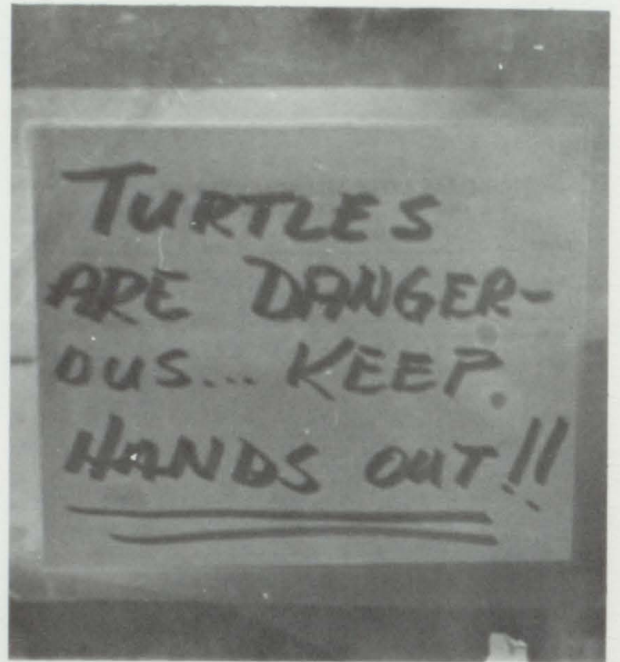 TURTLES
ARE DANGER-
OUS... KEEP
HANDS OUT!!